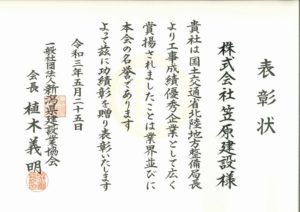 表彰状
株式会社笠原建設様
貴社は国土交通省北陸地方整備局長
より工事成績優秀企業として広く
賞揚されましたことは業界並びに
本会の名誉であります
よって茲に功績彰を贈り表彰いたします
令和三年五月二十五日
一般社団法人新潟県建設業協会
会長 植木義明